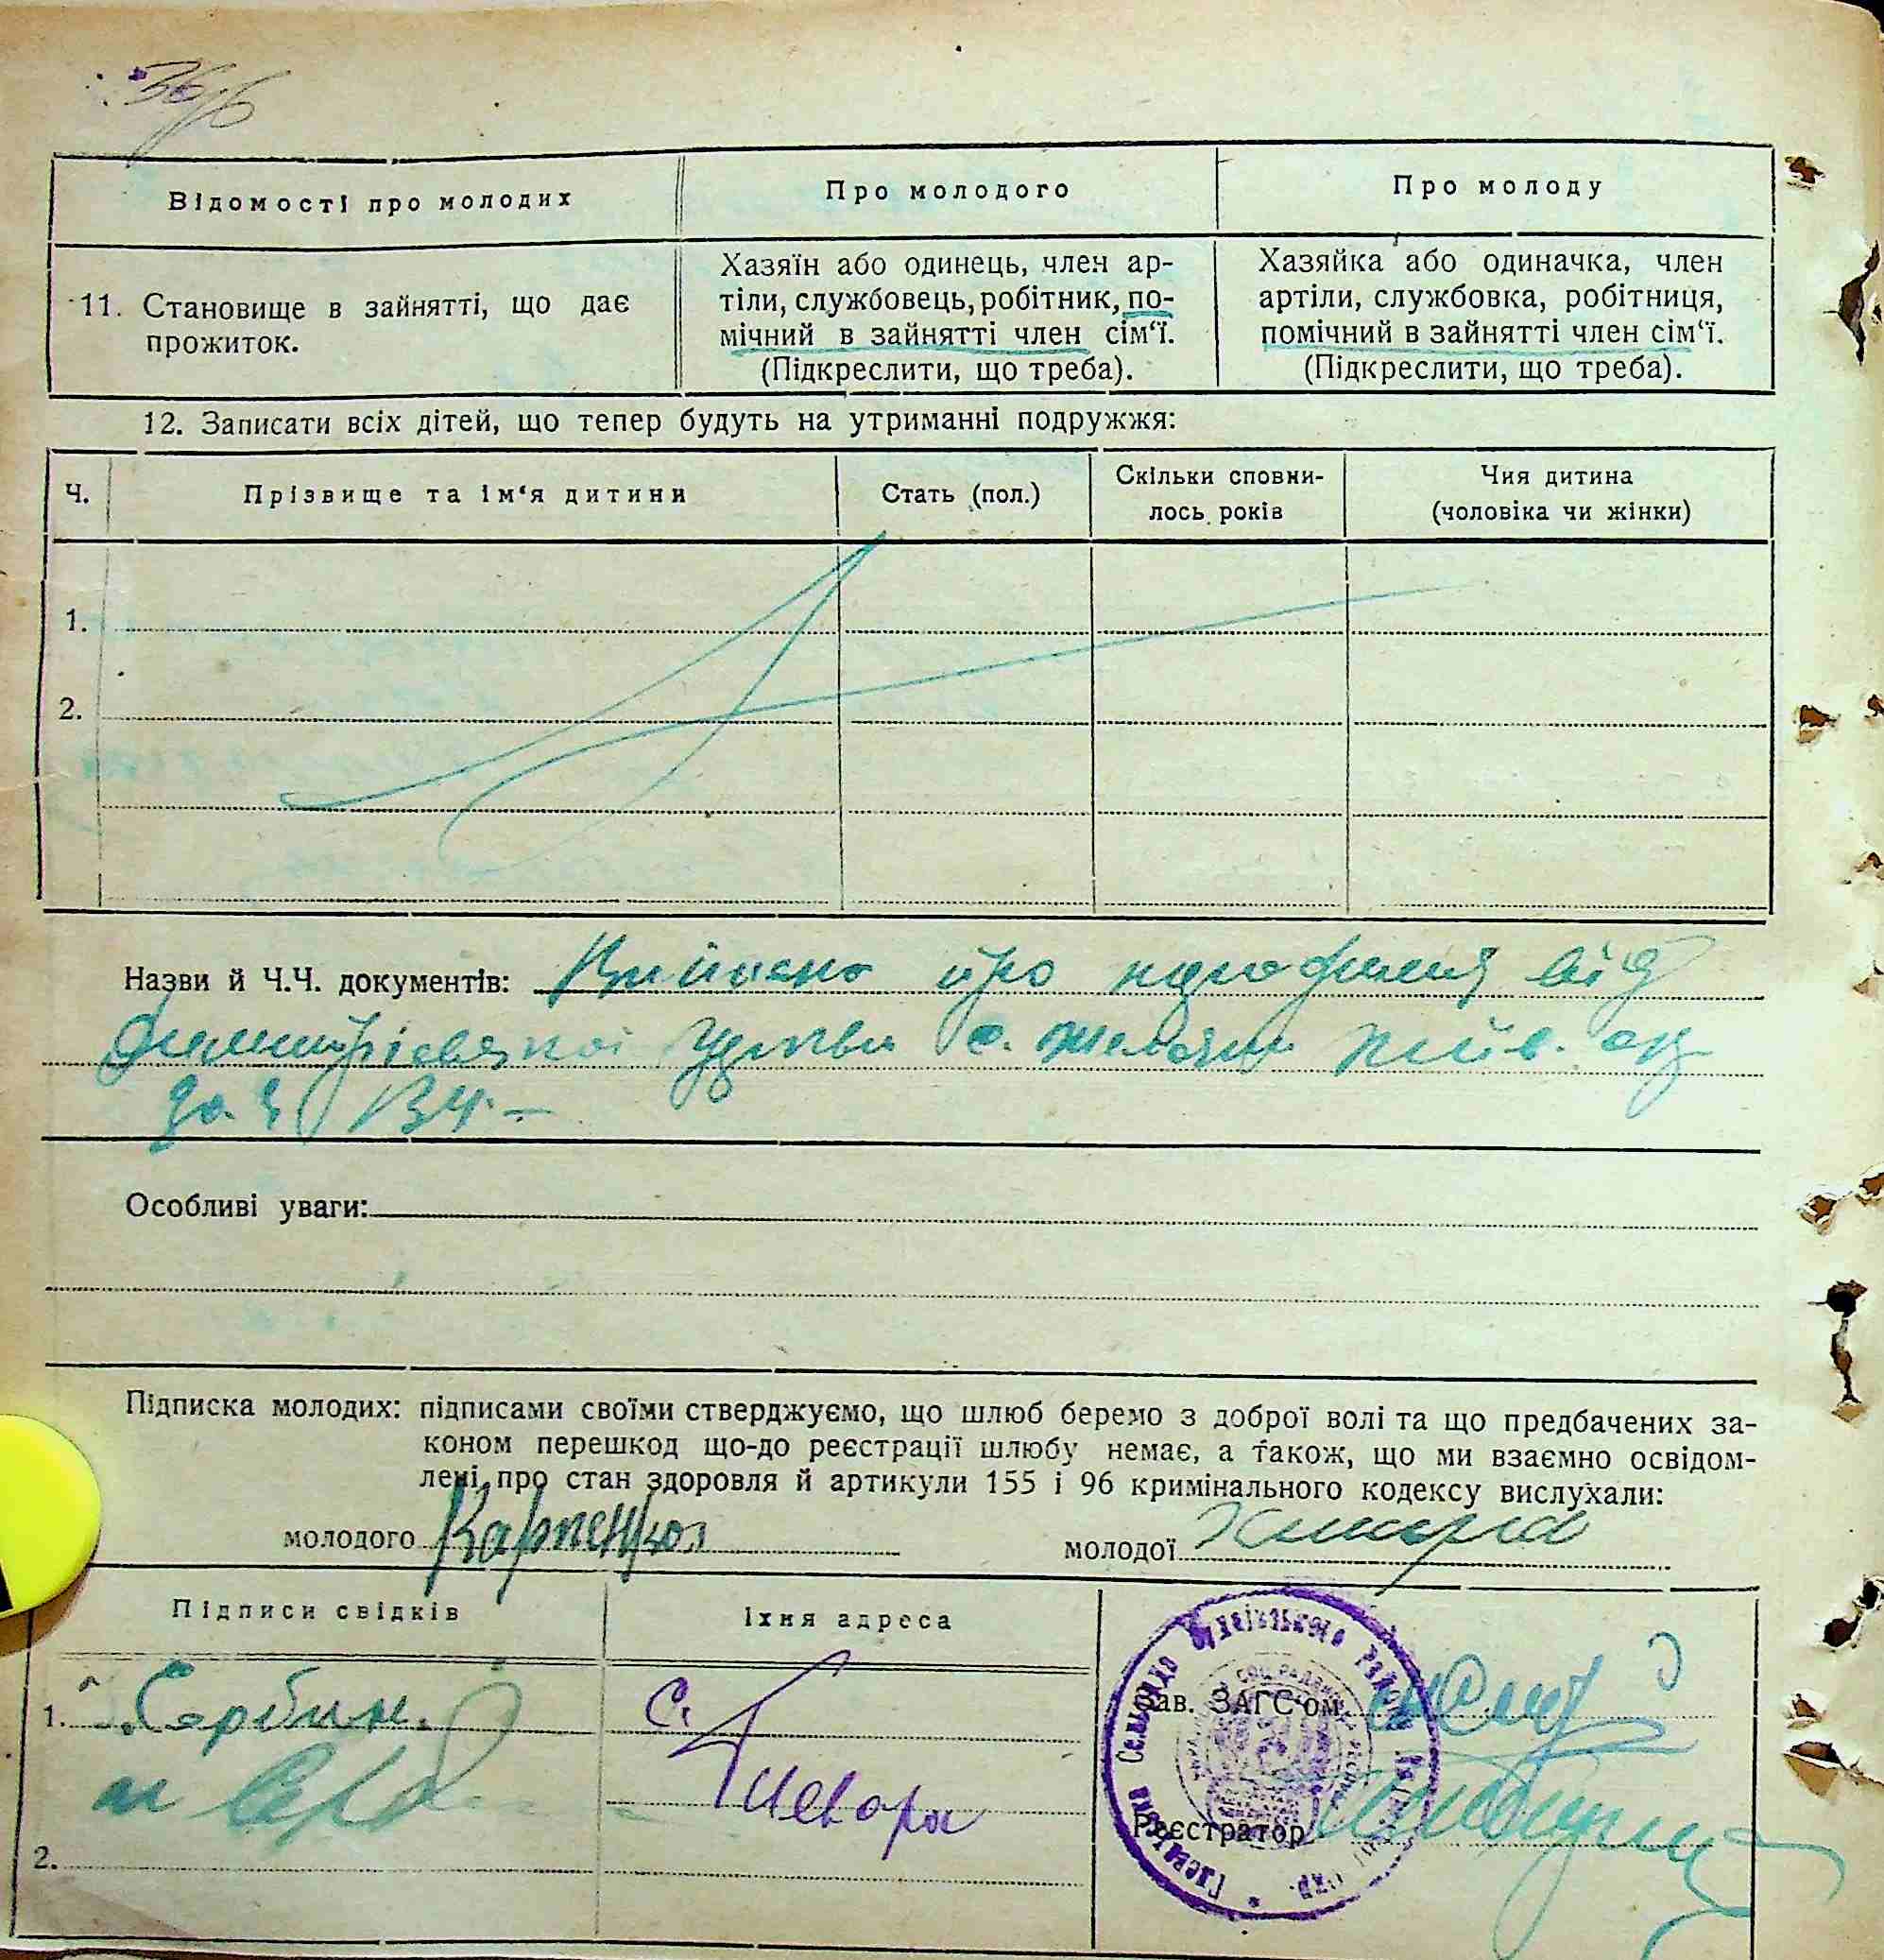 36/6
Відомості про молодих
Про молодого
Про молоду
11. Становище в зайнятті, що дає
прожиток.
Хазяїн або одинець, член ар-
тіли, службовець, робітник, по-
мічний в зайнятті член сім‘ї.
(Підкреслити, що треба).
Хазяйка або одиначка, член
артіли, службовка, робітниця,
помічний в зайнятті член сім‘ї.
(Підкреслити, що треба).
12. Записати всіх дітей, що тепер будуть на утриманні подружжя:
Ч.
Прізвище та ім‘я дитини
Стать (пол.)
Скільки сповни-
лось років
Чия дитина
(чоловіка чи жінки)
1.
2.
Назви й Ч.Ч. документів: про від
церкви с.
за ч 134. –
Особливі уваги:
Підписка молодих: підписами своїми стверджуємо, що шлюб беремо з доброї волі та що предбачених за-
коном перешкод що-до реєстрації шлюбу немає, а також, що ми взаємно освідом-
лені про стан здоровля й артикули 155 і 96 кримінального кодексу вислухали:
молодого Карпенко
молодої
Підписи свідків
Їхня адреса
1. Сербин.
с.
2.
Зав. ЗАГС‘ом
Реєстратор